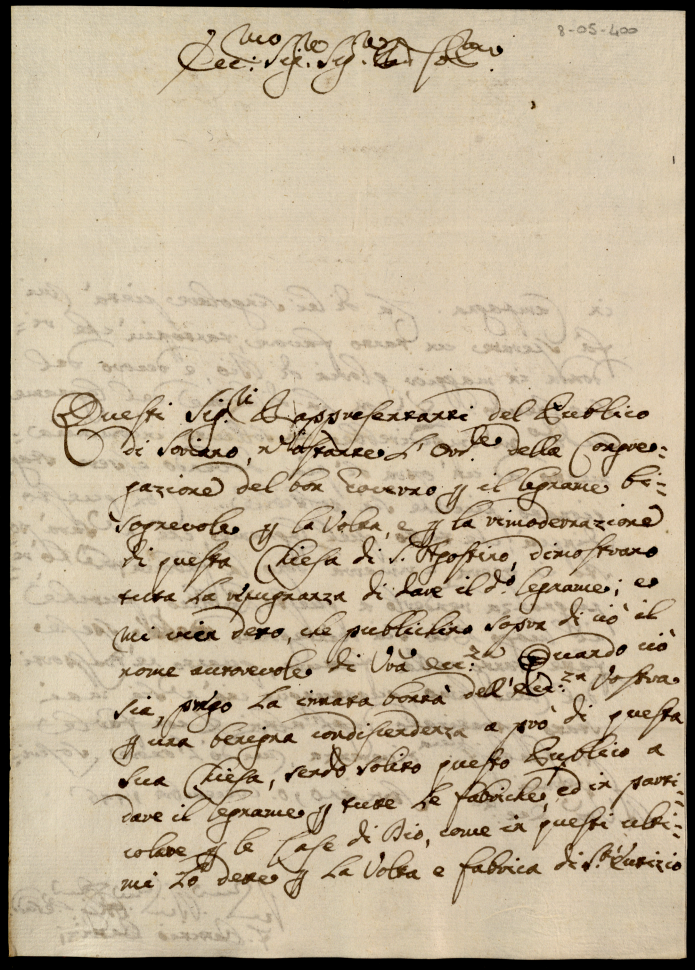 8-05-400
Ecc:mo Sig.re Sig.re Pron Col.mo
Questi Sig.ri Rappresentanti del Publico
di Soriano, n'ostante l'Ord.ne della Congre=
gazione del bon Governo p il legname bi=
sognevole p la Volta, e p la rimodernazione
di questa Chiesa di S. Agostino, dimostrano
tutta la ripugnanza di dare il do legname; e
mi vien detto, che publichino sopra di ciò il
nome autorevole di Vra Ecc:za Quando ciò
sia, prego la innata bontà dell'Ecc:za Vostra
p una benigna condiscendenza a prò di questa
sua Chiesa, sendo solito questo Publico a
dare il legname p tutte le fabriche, ed in parti=
colare p le Case di Dio, come in questi ulti=
mi lo dette p la Volta e fabrica di S. Eutizio